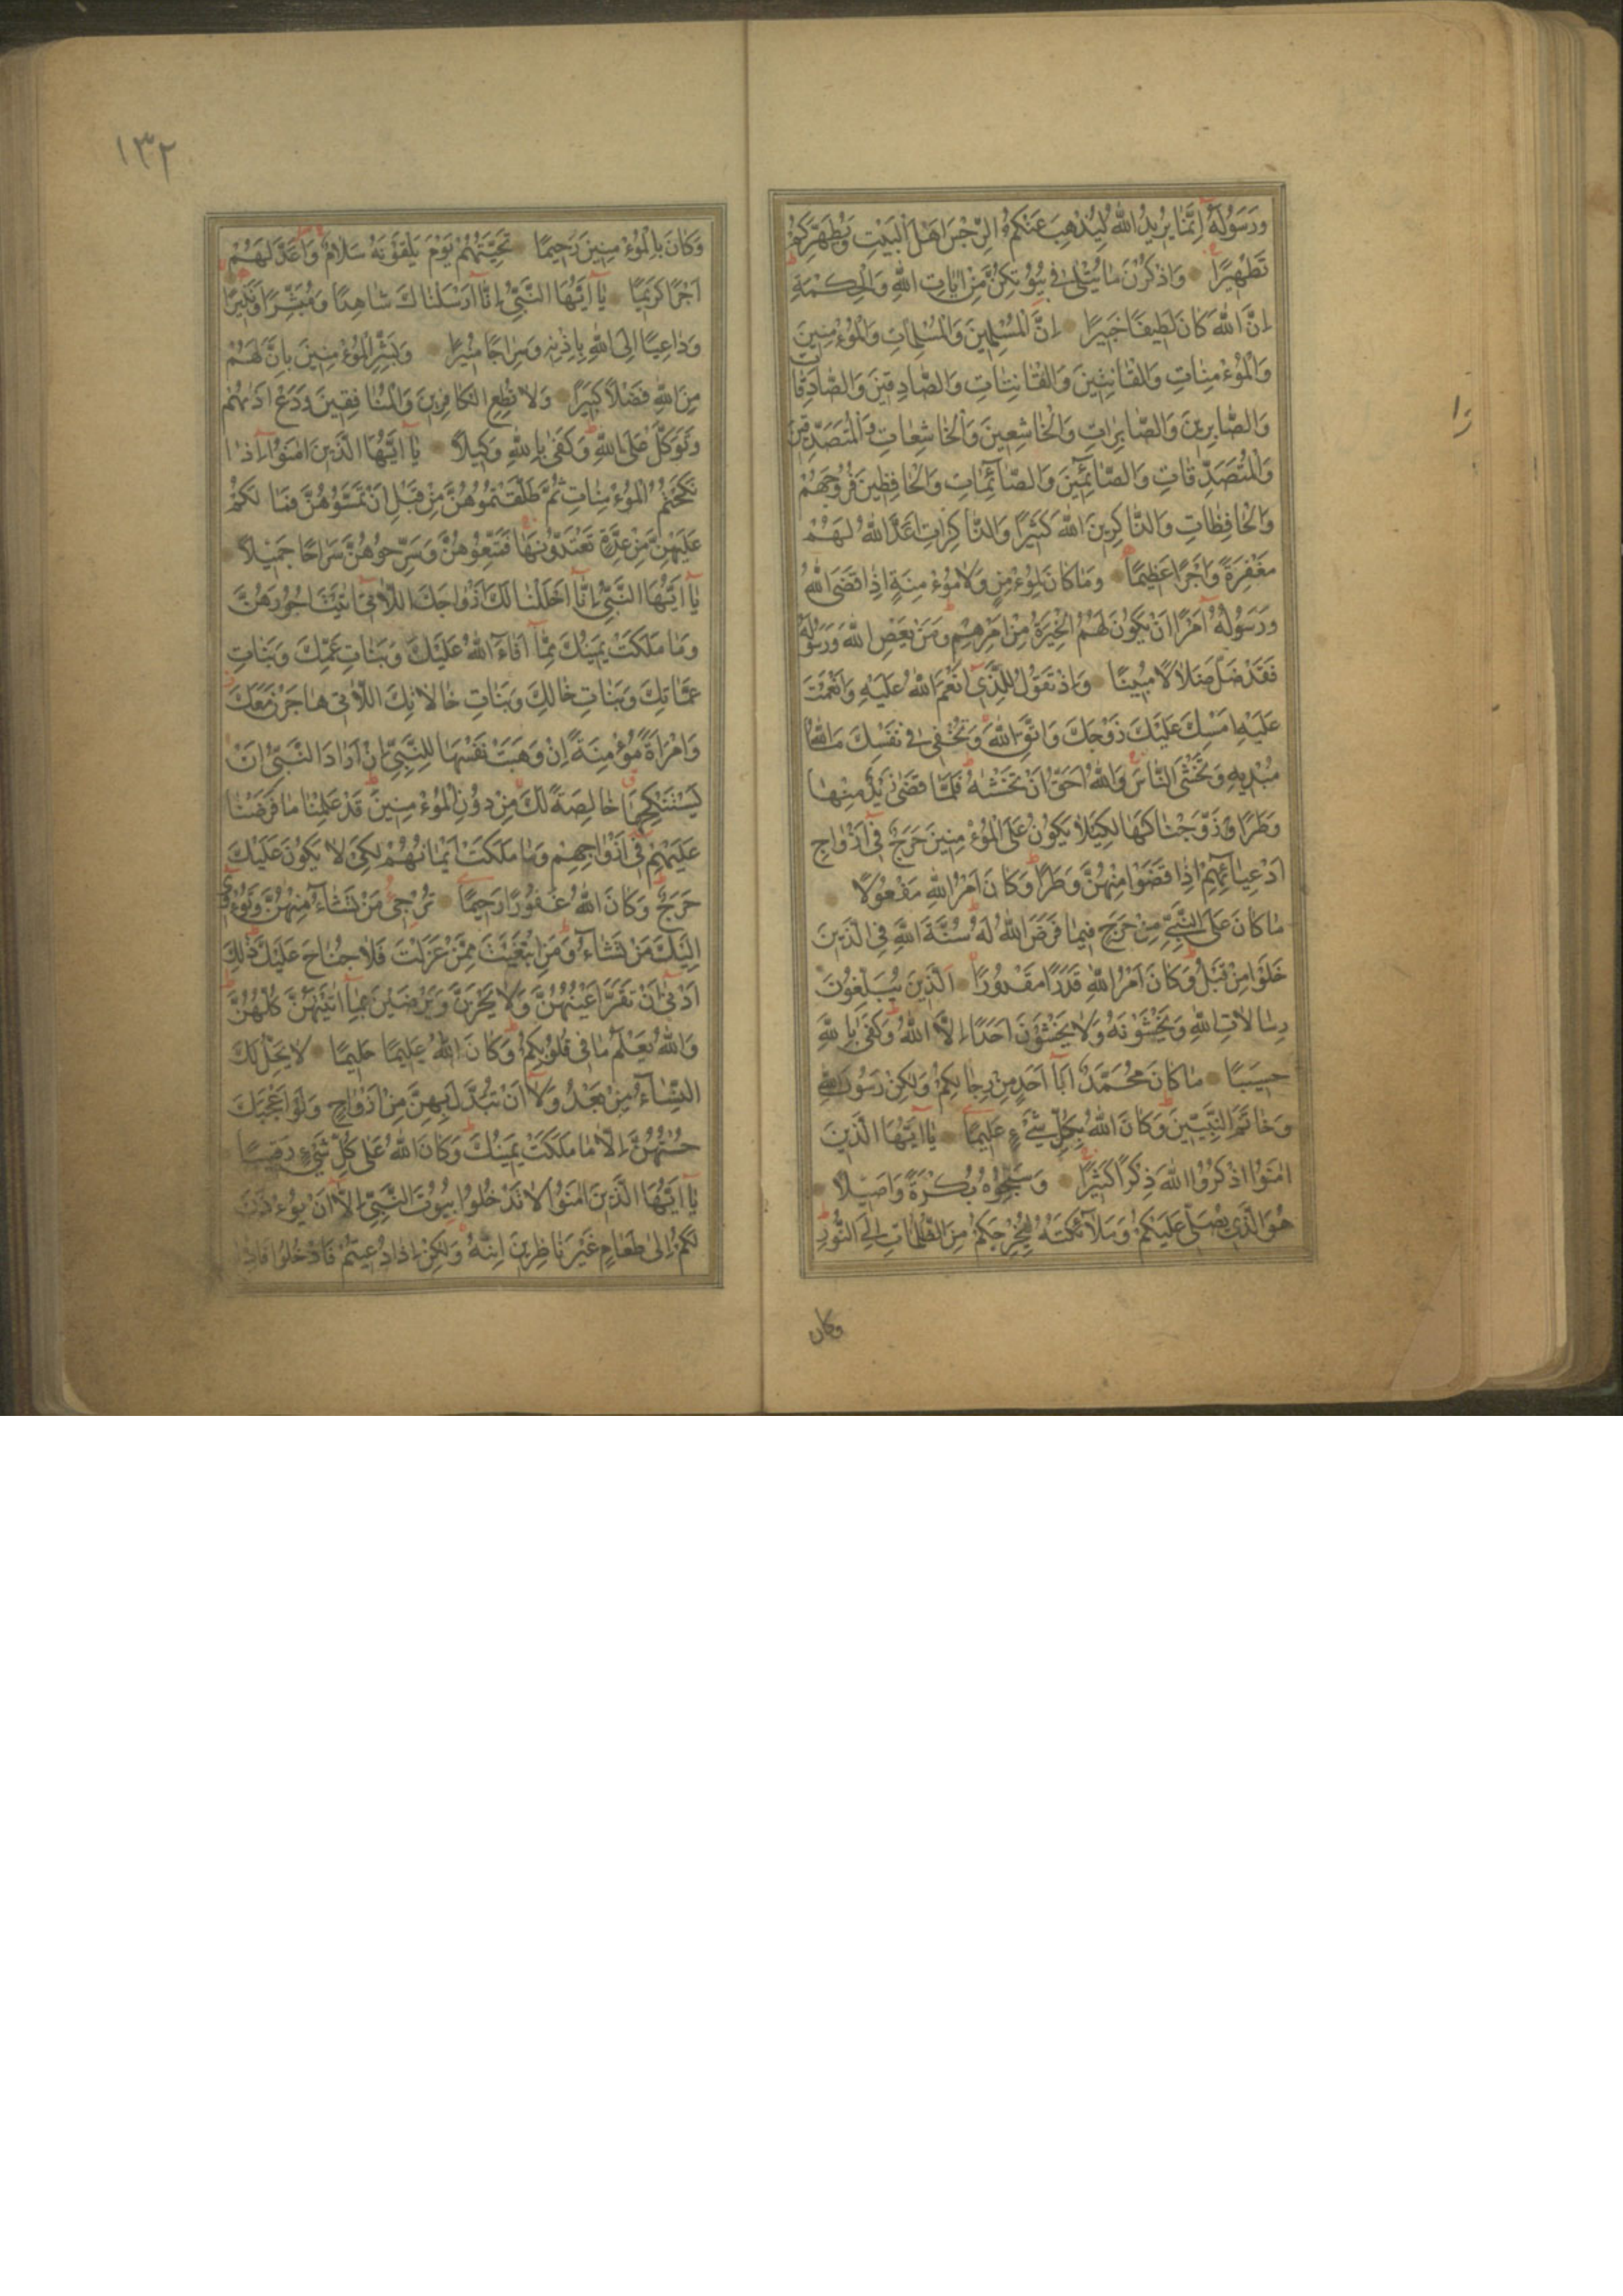 وَرَسُولَهُ اِنَّمَا يُرِيدُ اللّٰهُ لِيُذْهِبَ عَنْكُمُ الرِّجْسَ اَهْلَ الْبَيْتِ وَيُطَهِّرَكُمْ
تَطْهِيرًا وَاذْكُرْنَ مَا يُتْلٰى فِى بُيُوتِكُنَّ مِنْ اٰيَاتِ اللّٰهِ وَالْحِكْمَةِ
اِنَّ اللّٰهَ كَانَ لَطِيفًا خَبِيرًا اِنَّ الْمُسْلِمِينَ وَالْمُسْلِمَاتِ وَالْمُؤْمِنِينَ
وَالْمُؤْمِنَاتِ وَالْقَانِتِينَ وَالْقَانِتَاتِ وَالصَّادِقِينَ وَالصَّادِقَاتِ
وَالصَّابِرِينَ وَالصَّابِرَاتِ وَالْخَاشِعِينَ وَالْخَاشِعَاتِ وَالْمُتَصَدِّقِينَ
وَالْمُتَصَدِّقَاتِ وَالصَّائِمِينَ وَالصَّائِمَاتِ وَالْحَافِظِينَ فُرُوجَهُمْ
وَالْحَافِظَاتِ وَالذَّاكِرِينَ اللّٰهَ كَثِيرًا وَالذَّاكِرَاتِ اَعَدَّ اللّٰهُ لَهُمْ
مَغْفِرَةً وَاَجْرًا عَظِيمًا وَمَا كَانَ لِمُؤْمِنٍ وَلَا مُؤْمِنَةٍ اِذَا قَضَى اللّٰهُ
وَرَسُولُهُ اَمْرًا اَنْ يَكُونَ لَهُمُ الْخِيَرَةُ مِنْ اَمْرِهِمْ وَمَنْ يَعْصِ اللّٰهَ وَرَسُولَهُ
فَقَدْ ضَلَّ ضَلَالًا مُبِينًا وَاِذْ تَقُولُ لِلَّذِى اَنْعَمَ اللّٰهُ عَلَيْهِ وَاَنْعَمْتَ
عَلَيْهِ اَمْسِكْ عَلَيْكَ زَوْجَكَ وَاتَّقِ اللّٰهَ وَتُخْفِى فِى نَفْسِكَ مَا اللّٰهُ
مُبْدِيهِ وَتَخْشَى النَّاسَ وَاللّٰهُ اَحَقُّ اَنْ تَخْشٰيهُ فَلَمَّا قَضٰى زَيْدٌ مِنْهَا
وَطَرًا زَوَّجْنَاكَهَا لِكَيْلَا يَكُونَ عَلَى الْمُؤْمِنِينَ حَرَجٌ فِى اَزْوَاجِ
اَدْعِيَائِهِمْ اِذَا قَضَوْا مِنْهُنَّ وَطَرًا وَكَانَ اَمْرُ اللّٰهِ مَفْعُولًا
مَا كَانَ عَلَى النَّبِىِّ مِنْ حَرَجٍ فِيمَا فَرَضَ اللّٰهُ لَهُ سُنَّةَ اللّٰهِ فِى الَّذِينَ
خَلَوْا مِنْ قَبْلُ وَكَانَ اَمْرُ اللّٰهِ قَدَرًا مَقْدُورًا اَلَّذِينَ يُبَلِّغُونَ
رِسَالَاتِ اللّٰهِ وَيَخْشَوْنَهُ وَلَا يَخْشَوْنَ اَحَدًا اِلَّا اللّٰهَ وَكَفٰى بِاللّٰهِ
حَسِيبًا مَا كَانَ مُحَمَّدٌ اَبَا اَحَدٍ مِنْ رِجَالِكُمْ وَلٰكِنْ رَسُولَ اللّٰهِ
وَخَاتَمَ النَّبِيّٖنَ وَكَانَ اللّٰهُ بِكُلِّ شَىْءٍ عَلِيمًا يَا اَيُّهَا الَّذِينَ
اٰمَنُوا اذْكُرُوا اللّٰهَ ذِكْرًا كَثِيرًا وَسَبِّحُوهُ بُكْرَةً وَاَصِيلًا
هُوَ الَّذِى يُصَلِّى عَلَيْكُمْ وَمَلَائِكَتُهُ لِيُخْرِجَكُمْ مِنَ الظُّلُمَاتِ اِلَى النُّورِ
وكان
١٣٢
وَكَانَ بِالْمُؤْمِنِينَ رَحِيمًا تَحِيَّتُهُمْ يَوْمَ يَلْقَوْنَهُ سَلَامٌ وَاَعَدَّ لَهُمْ
اَجْرًا كَرِيمًا يَا اَيُّهَا النَّبِىُّ اِنَّا اَرْسَلْنَاكَ شَاهِدًا وَمُبَشِّرًا وَنَذِيرًا
وَدَاعِيًا اِلَى اللّٰهِ بِاِذْنِهِ وَسِرَاجًا مُنِيرًا وَبَشِّرِ الْمُؤْمِنِينَ بِاَنَّ لَهُمْ
مِنَ اللّٰهِ فَضْلًا كَبِيرًا وَلَا تُطِعِ الْكَافِرِينَ وَالْمُنَافِقِينَ وَدَعْ اَذٰيهُمْ
وَتَوَكَّلْ عَلَى اللّٰهِ وَكَفٰى بِاللّٰهِ وَكِيلًا يَا اَيُّهَا الَّذِينَ اٰمَنُوا اِذَا
نَكَحْتُمُ الْمُؤْمِنَاتِ ثُمَّ طَلَّقْتُمُوهُنَّ مِنْ قَبْلِ اَنْ تَمَسُّوهُنَّ فَمَا لَكُمْ
عَلَيْهِنَّ مِنْ عِدَّةٍ تَعْتَدُّونَهَا فَمَتِّعُوهُنَّ وَسَرِّحُوهُنَّ سَرَاحًا جَمِيلًا
يَا اَيُّهَا النَّبِىُّ اِنَّا اَحْلَلْنَا لَكَ اَزْوَاجَكَ اللَّاتِى اٰتَيْتَ اُجُورَهُنَّ
وَمَا مَلَكَتْ يَمِينُكَ مِمَّا اَفَاءَ اللّٰهُ عَلَيْكَ وَبَنَاتِ عَمِّكَ وَبَنَاتِ
عَمَّاتِكَ وَبَنَاتِ خَالِكَ وَبَنَاتِ خَالَاتِكَ اللَّاتِى هَاجَرْنَ مَعَكَ
وَامْرَاَةً مُؤْمِنَةً اِنْ وَهَبَتْ نَفْسَهَا لِلنَّبِىِّ اِنْ اَرَادَ النَّبِىُّ اَنْ
يَسْتَنْكِحَهَا خَالِصَةً لَكَ مِنْ دُونِ الْمُؤْمِنِينَ قَدْ عَلِمْنَا مَا فَرَضْنَا
عَلَيْهِمْ فِى اَزْوَاجِهِمْ وَمَا مَلَكَتْ اَيْمَانُهُمْ لِكَيْ لَا يَكُونَ عَلَيْكَ
حَرَجٌ وَكَانَ اللّٰهُ غَفُورًا رَحِيمًا تُرْجِى مَنْ تَشَاءُ مِنْهُنَّ وَتُؤْوِى
اِلَيْكَ مَنْ تَشَاءُ وَمَنِ ابْتَغَيْتَ مِمَّنْ عَزَلْتَ فَلَا جُنَاحَ عَلَيْكَ ذٰلِكَ
اَدْنٰى اَنْ تَقَرَّ اَعْيُنُهُنَّ وَلَا يَحْزَنَّ وَيَرْضَيْنَ بِمَا اٰتَيْتَهُنَّ كُلُّهُنَّ
وَاللّٰهُ يَعْلَمُ مَا فِى قُلُوبِكُمْ وَكَانَ اللّٰهُ عَلِيمًا حَلِيمًا لَا يَحِلُّ لَكَ
النِّسَاءُ مِنْ بَعْدُ وَلَا اَنْ تَبَدَّلَ بِهِنَّ مِنْ اَزْوَاجٍ وَلَوْ اَعْجَبَكَ
حُسْنُهُنَّ اِلَّا مَا مَلَكَتْ يَمِينُكَ وَكَانَ اللّٰهُ عَلٰى كُلِّ شَىْءٍ رَقِيبًا
يَا اَيُّهَا الَّذِينَ اٰمَنُوا لَا تَدْخُلُوا بُيُوتَ النَّبِىِّ اِلَّا اَنْ يُؤْذَنَ
لَكُمْ اِلٰى طَعَامٍ غَيْرَ نَاظِرِينَ اِنٰيهُ وَلٰكِنْ اِذَا دُعِيتُمْ فَادْخُلُوا فَاِذَا